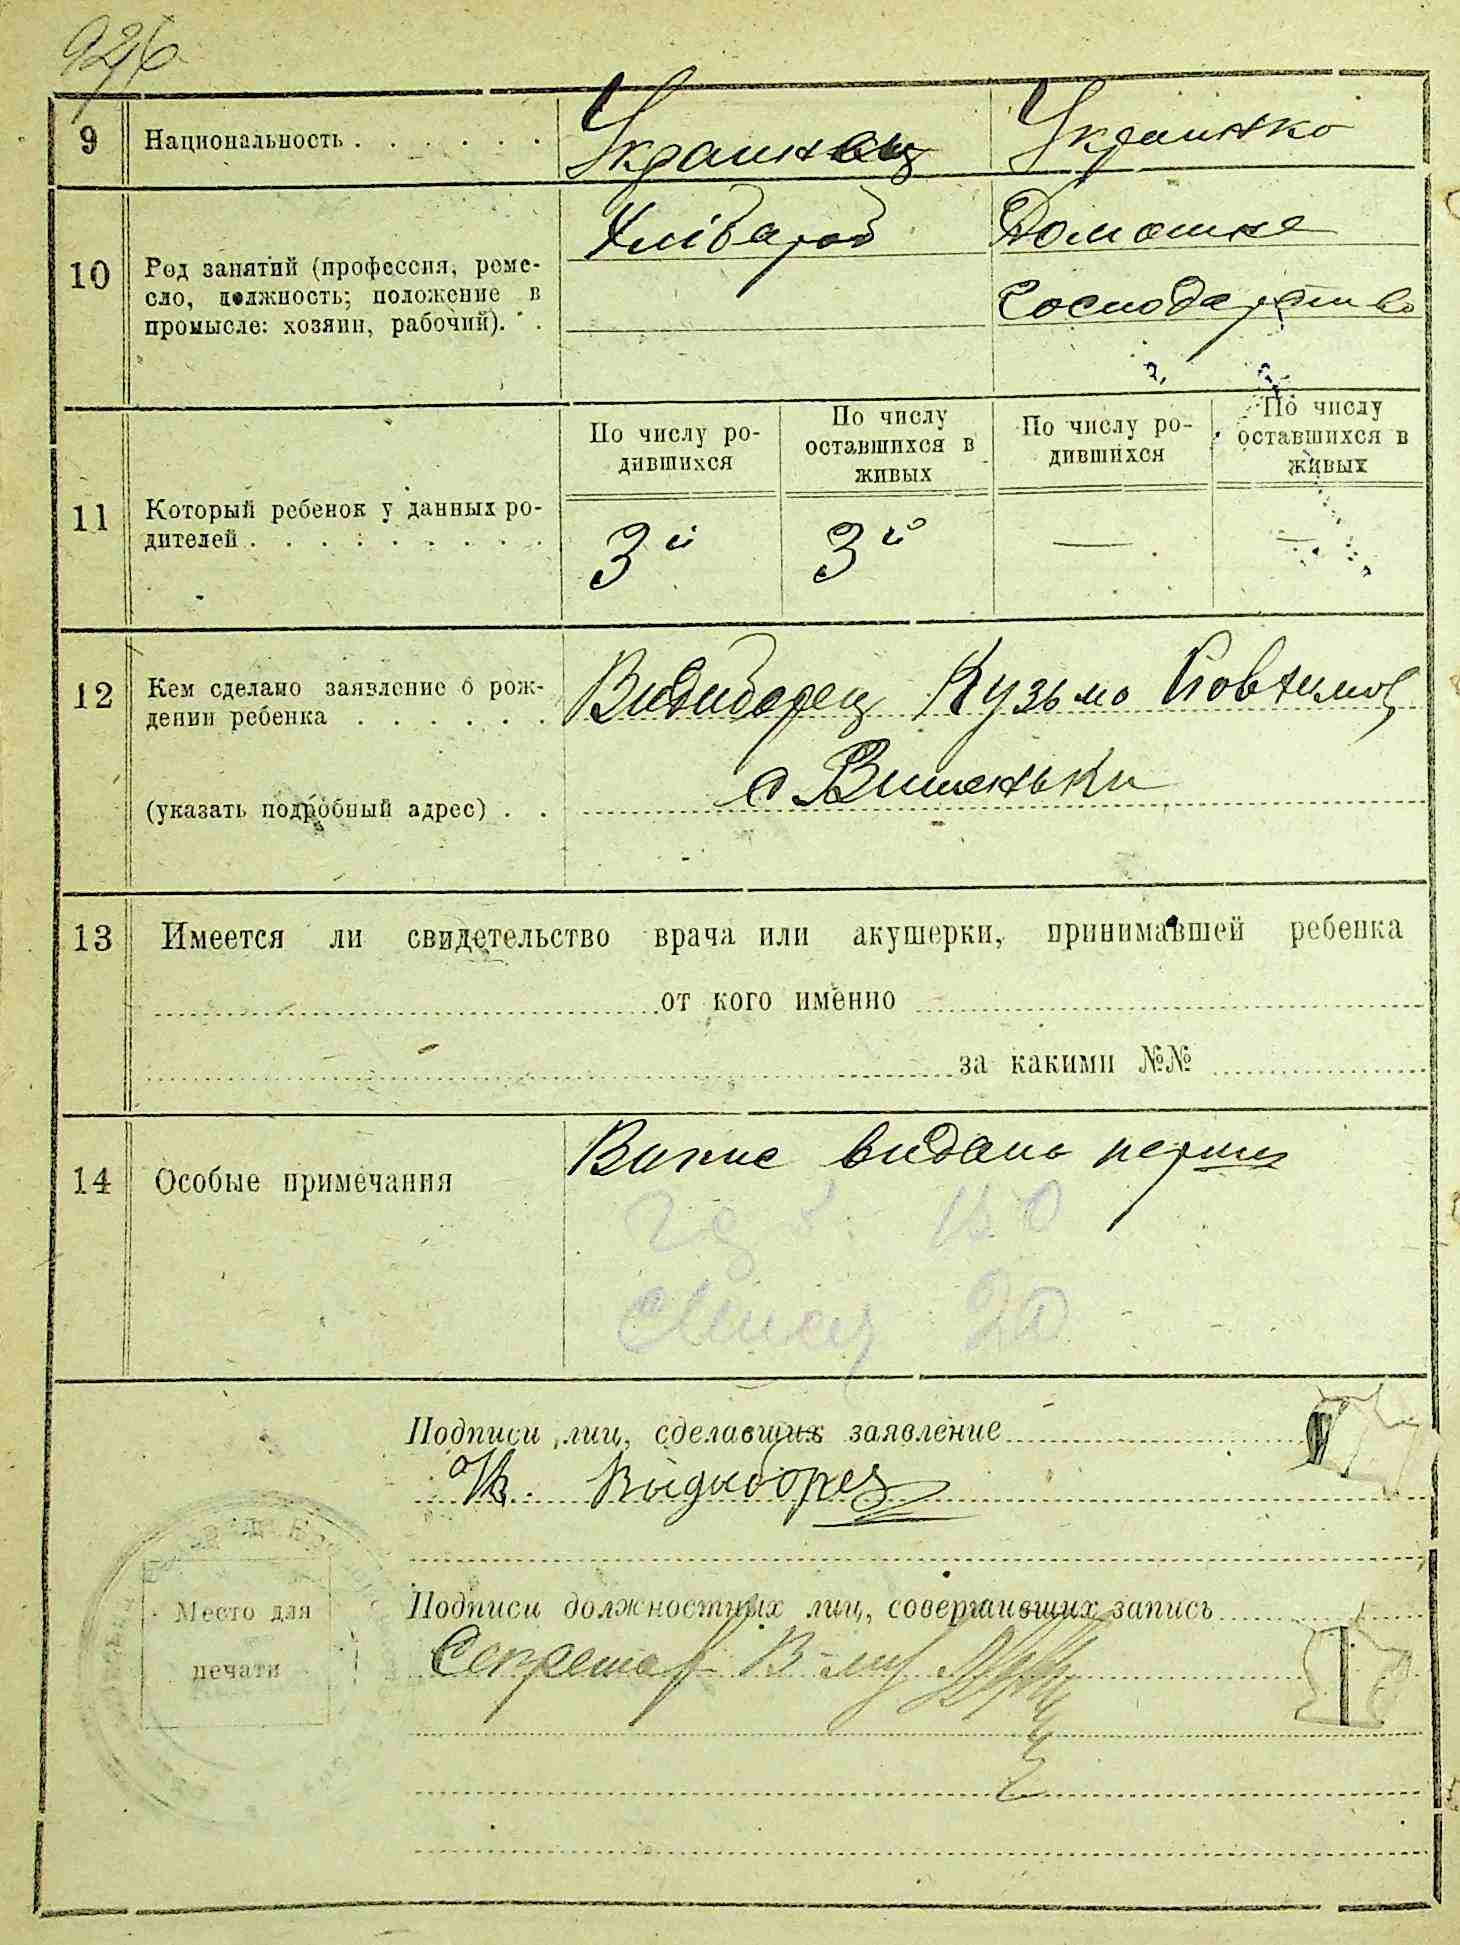 926
9 Национальность . . . . . . Украинец Украинко
10 Род занятий (профессия, реме-
сло, должность; положение в
промысле: хозяин, рабочий). .
Хлібароб
Домашне
Господарство
11 Который ребенок у данных ро-
дителей . . . . . . . . .
По числу ро-
дившихся
По числу
оставшихся в
живых
По числу ро-
дившихся
По числу
оставшихся в
живых
3й 3й — —
12 Кем сделано заявление о рож-
дении ребенка . . . . . .
(указать подробный адрес) . .
Видиборец Кузьмо
с Вишеньки
13 Имеется ли свидетельство врача или акушерки, принимавшей ребенка
от кого именно
за какими №№
14 Особые примечания
Випис видано перши
Подписи лиц, сделавших заявление
К. Выдыборец
Подписи должностных лиц, совершивших запись
Секретар
Место для
печати